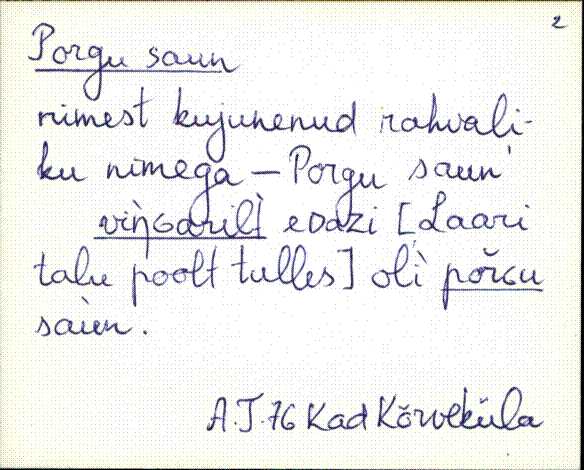 2
Porgu saun
nimest kujunenud rahvali-
ku nimega – Porgu saun
vìŋGarilt̀ eDazi [Laari
talu poolt tulles] olì põrGu
saùn.
A.J. 76 Kad Kõrveküla